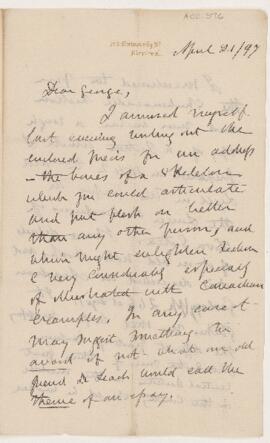 ACC. 576
April 21/97
Dear George,
I amused myself
last evening writing out the
enclosed precis for an address
- the bones of a skeleton
which you could articulate
and put flesh on better
than any other person, and
which might enlighten
& very considerably especially
if illustrated with Canadian
examples. In any case it
may suggest something in
accord if not what our old
friend Dr Leach would call the
theme of an essay.